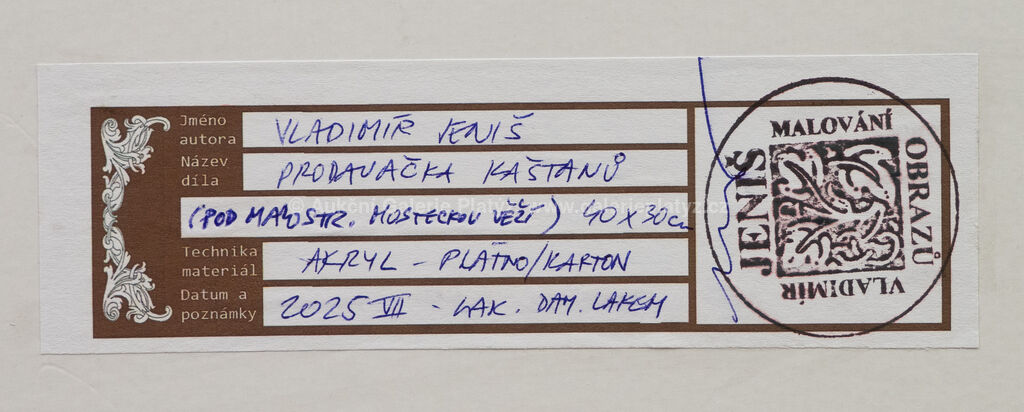 Jméno autora VLADIMÍR JENIŠ
Název díla PRODAVAČKA KAŠTANŮ
(POD MALOSTR. MOSTECKOU VĚŽÍ) 40 X 30 cm
© Aukční Galerie Platýz www.galerieplatyz.cz
Technika materiál AKRYL - PLÁTNO/KARTON
Datum a poznámky 2025 VII - LAK. DAM. LAKEM
MALOVÁNÍ
OBRAZŮ
VLADIMÍR
JENIŠ